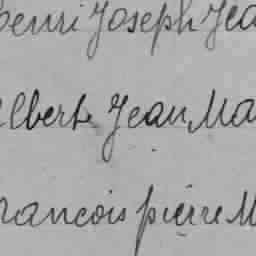 henri Joseph Jea
lbert Jean Ma
rancois pierre M